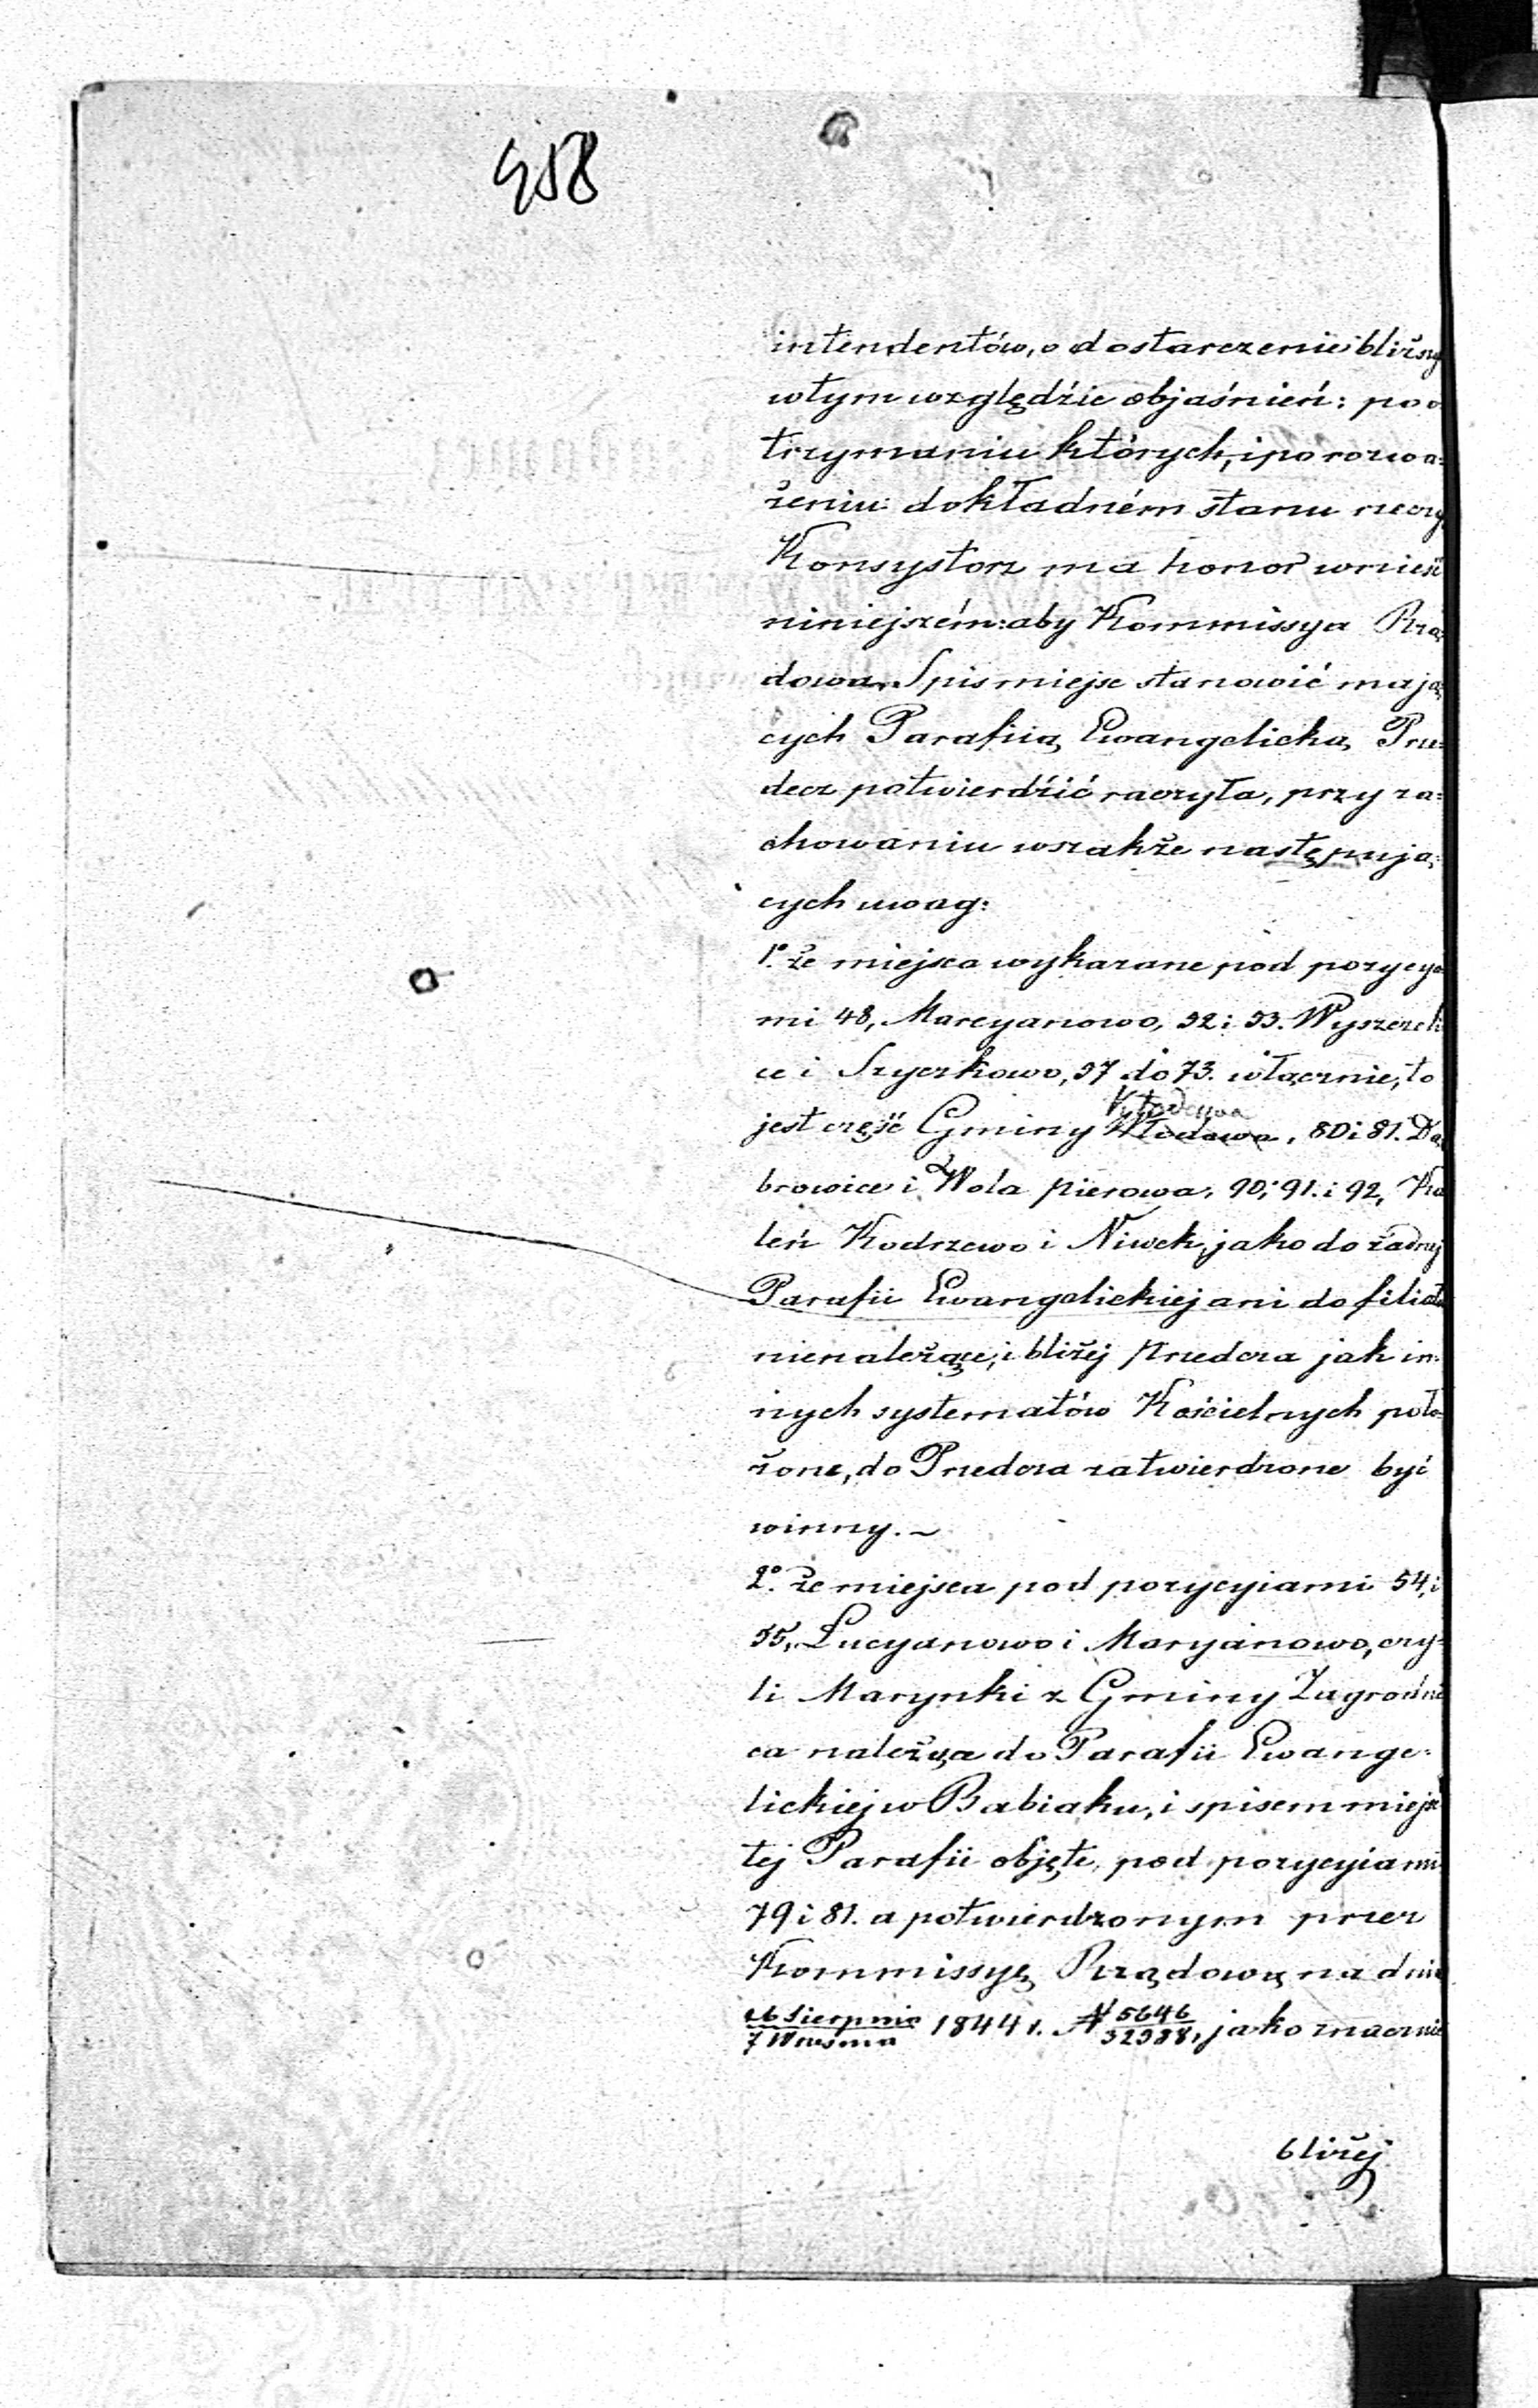 458
intendentów, o dostarczenie bliższy
w tym względzie objaśnień: po o
trzymaniu których, i po rozwa=
żeniu dokładném stanu rzeczy
Konsystorz ma honor wnieść
niniejszém: aby Kommissya Rzą
dowa, Spis miejsc stanowić mają
cych Parafiią Ewangelicką Prze=
decz potwierdzić raczyła, przy za=
chowaniu wszakże następują=
cych uwag:
1º że miejsca wykazane pod pozycya
mi 48, Marcyanowo, 52 i 53. Wyszczeli
ce i Szyczkowo, 57 do 73. włącznie, to
jest część Gminy Kłodawa, 80 i 81. Dą
browice i Wola pierowa, 90, 91. i 92, Ka
leń Kodrzewo i Niwek, jako do żadnej
Parafii Ewangelickiej ani do filiału
nienależące, i bliżej Przedcza jak in=
nych systematów Kościelnych poło=
żone, do Przedcza zatwierdzone być
winny. ~
2º że miejsca pod pozycyiami 54, i
55, Lucyanowo i Maryanowo, czy=
li Marynki z Gminy Zagrodni
ca należą do Parafii Ewange=
lickiej w Babiaku, i spisem miejsc
tej Parafii objęte, pod pozycyiami
79 i 81. a potwierdzonym przez
Kommissyę Rządową na dniu
26 Sierpnia / 7 Września 1844 r. N 5646 / 32988, jako znacznie
bliżej